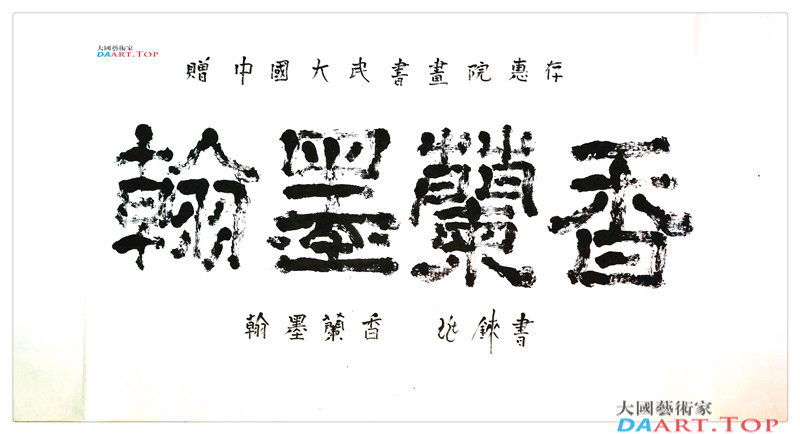 大國藝術家
DAART.TOP
贈中國大民書畫院惠存
翰墨蘭香
翰墨蘭香 書
大國藝術家
DAART.TOP